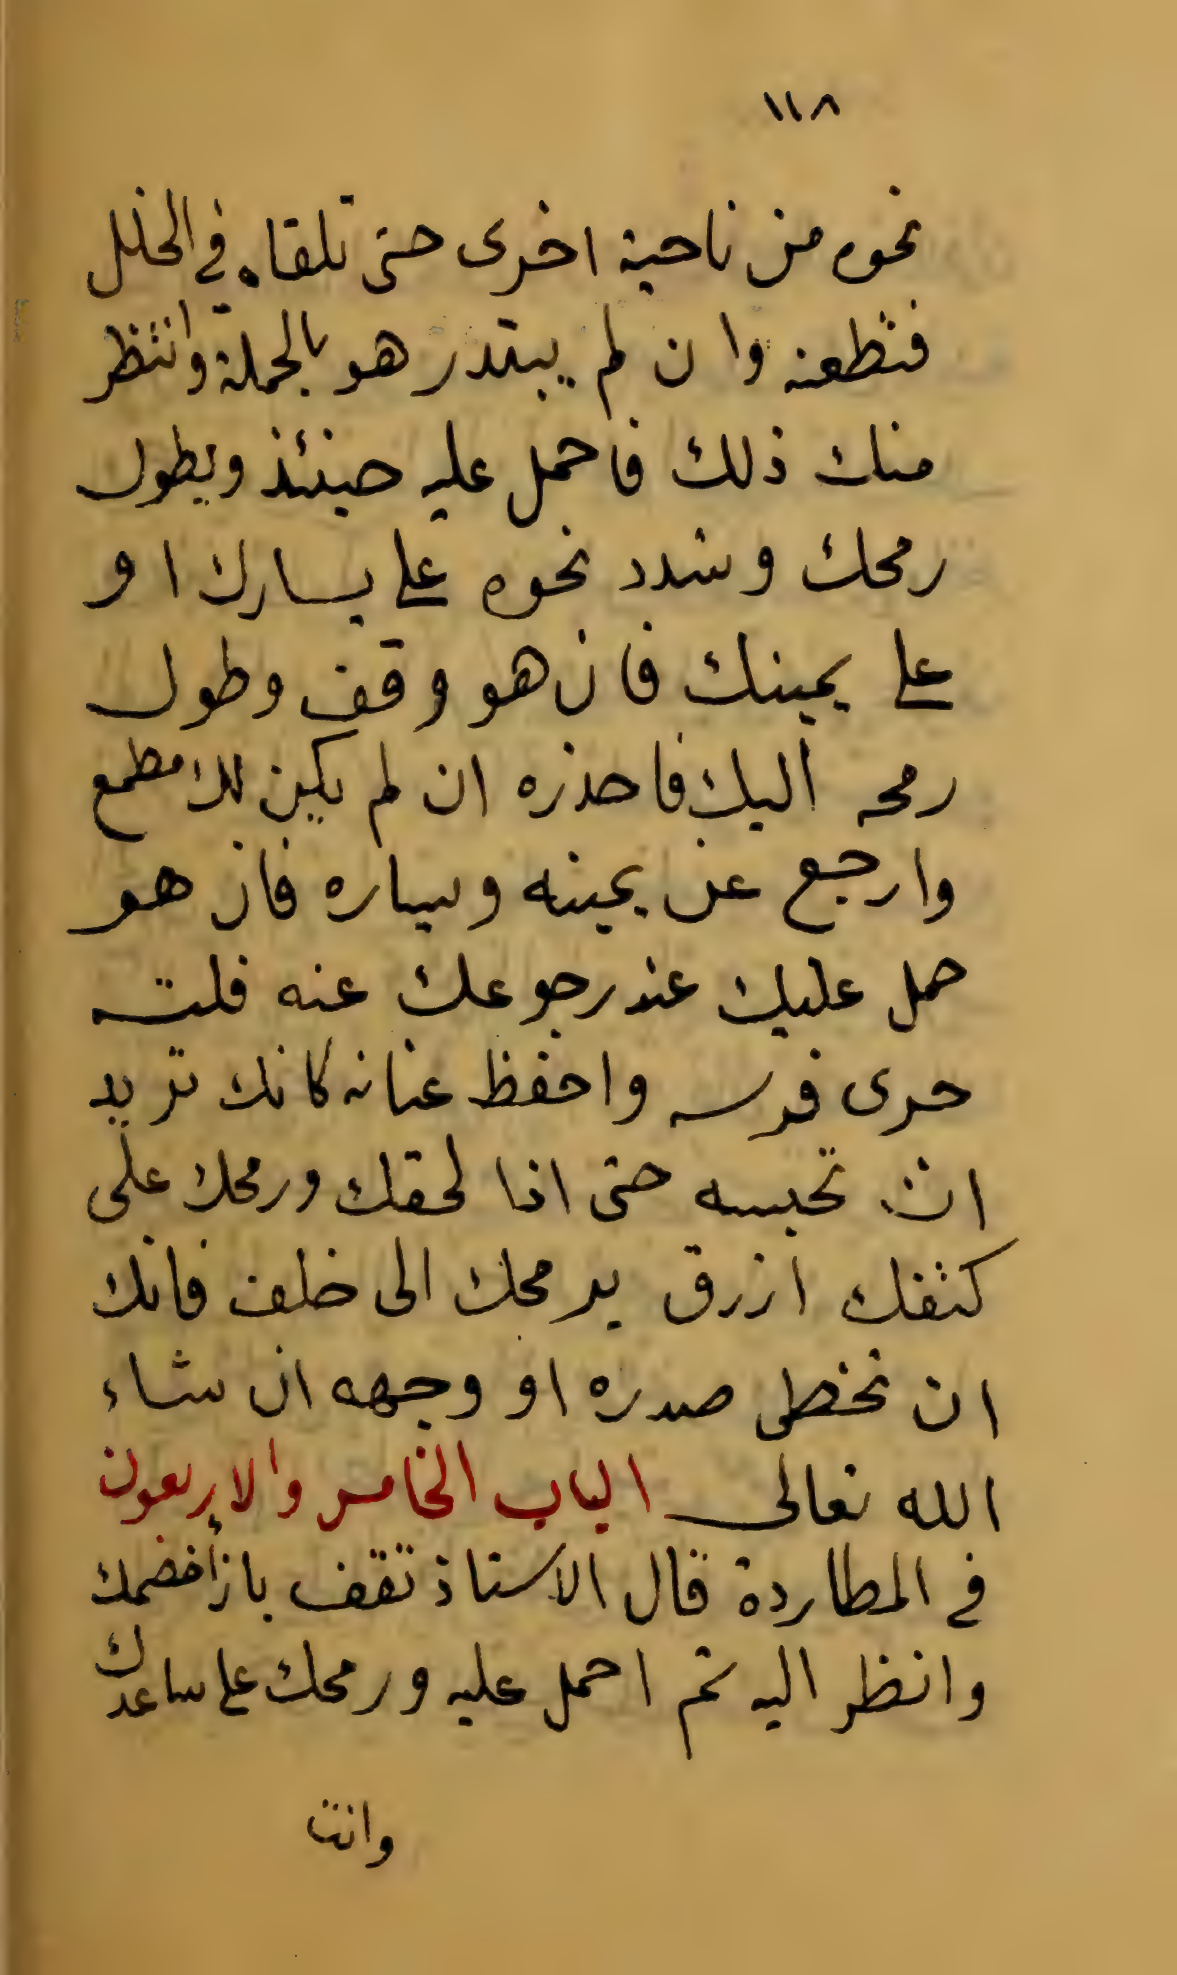 ١١٨
نحوه من ناحية اخرى حتى تلقاه في الخلل
فتطعنه وان لم يبتدر هو بالحملة وانتظر
منك ذلك فاحمل عليه حينئذ ويطول
رمحك وشدد نحوه على يسارك او
على يمينك فان هو وقف وطول
رمحه اليك فاحذره ان لم يكن لك مطمع
وارجع عن يمينه ويساره فان هو
حمل عليك عند رجوعك عنه فلت
حرى فرسه واحفظ عنانه كانك تريد
ان تحبسه حتى اذا لحقك ورمحك على
كتفك ازرق برمحك الى خلف فانك
ان تخطى صدره او وجهه ان شاء
الله تعالى الباب الخامس والاربعون
في المطاردة قال الاستاذ تقف بازأ خصمك
وانظر اليه ثم احمل عليه ورمحك على ساعدك
وانت